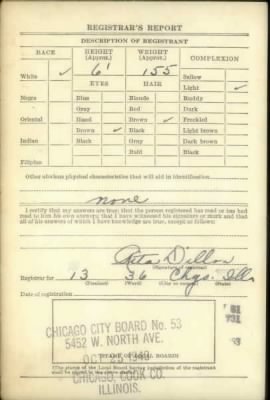 REGISTRAR'S REPORT
DESCRIPTION OF REGISTRANT
RACE HEIGHT (Approx.) WEIGHT (Approx.) COMPLEXION
6' 155 Sallow
White ✓ EYES HAIR Light ✓
Negro Blue Blonde Ruddy
Gray Red Dark
Oriental Hazel Brown ✓ Freckled
Brown ✓ Black Light brown
Indian Black Gray Dark brown
Bald Black
Filipino
Other obvious physical characteristics that will aid in identification
none
I certify that my answers are true; that the person registered has read or has had
read to him his own answers; that I have witnessed his signature or mark and that
all of his answers of which I have knowledge are true, except as follows:
Rita Dillon
(Signature of registrar)
Registrar for 13 36 Chgo. Ill
(Precinct) (Ward) (City or county) (State)
Date of registration
CHICAGO CITY BOARD No. 53
5452 W. NORTH AVE.
OCT
(STAMP OF LOCAL BOARD)
CHICAGO, COOK CO.
ILLINOIS.
(The stamp of the Local Board having jurisdiction of the registrant
shall be placed in the above space)